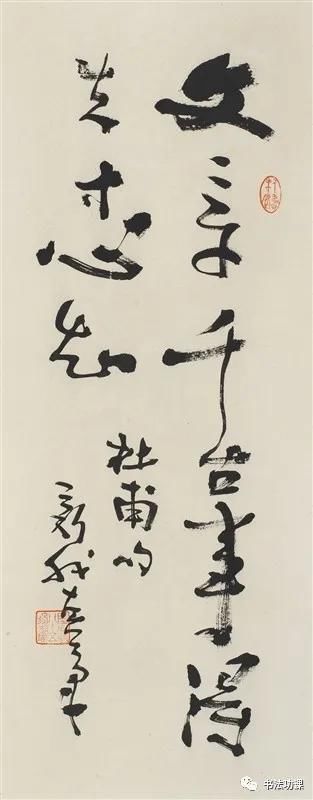 文章千古事得
失寸心知
杜甫句
新我左筆
书法功课